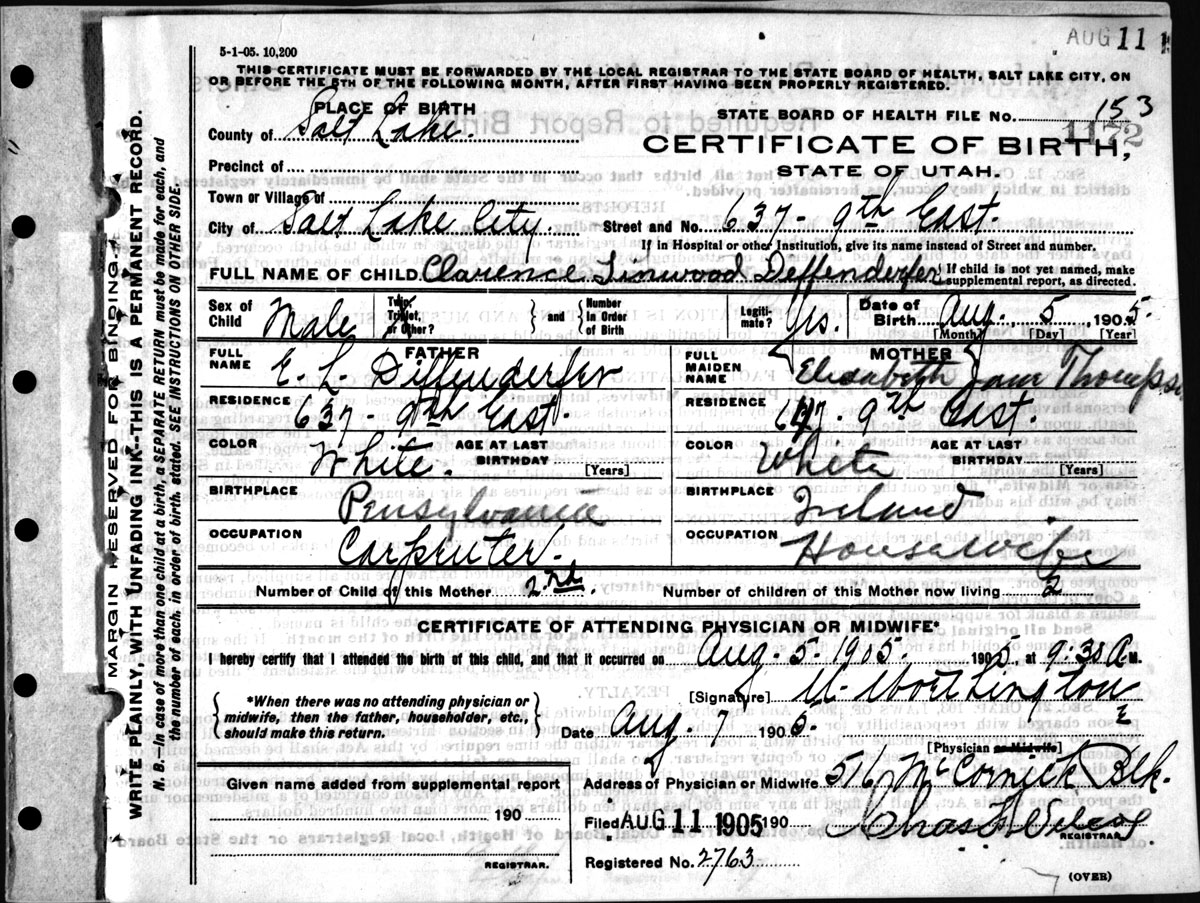 AUG 11 1
5-1-05. 10,200
THIS CERTIFICATE MUST BE FORWARDED BY THE LOCAL REGISTRAR TO THE STATE BOARD OF HEALTH, SALT LAKE CITY, ON
OR BEFORE THE 5TH OF THE FOLLOWING MONTH, AFTER FIRST HAVING BEEN PROPERLY REGISTERED.
PLACE OF BIRTH
County of Salt Lake.
Precinct of
Town or Village of
City of Salt Lake City.
STATE BOARD OF HEALTH FILE No. 153
1172
CERTIFICATE OF BIRTH,
STATE OF UTAH.
Street and No. 637- 9th East.
If in Hospital or other Institution, give its name instead of Street and number.
FULL NAME OF CHILD. Clarence Linwood Deffenderfer { If child is not yet named, make supplemental report, as directed.
Sex of Child Male
Twin, Triplet, or Other? } and { Number in Order of Birth
Legitimate? Yes.
Date of Birth Aug. 5 1905.
[Month] [Day] [Year]
FATHER
FULL NAME E. L. Diffenderfer
RESIDENCE 637- 9th East.
COLOR White.
AGE AT LAST BIRTHDAY
[Years]
BIRTHPLACE Pensylvania
OCCUPATION Carpenter.
MOTHER
FULL MAIDEN NAME Elizabeth Jane Thompson
RESIDENCE 637 9th East.
COLOR White
AGE AT LAST BIRTHDAY
[Years]
BIRTHPLACE Ireland
OCCUPATION Housewife
Number of Child of this Mother 2nd.
Number of children of this Mother now living 2
CERTIFICATE OF ATTENDING PHYSICIAN OR MIDWIFE*
I hereby certify that I attended the birth of this child, and that it occurred on Aug. 5- 1905. 1905, at 9:30 A.M.
{ *When there was no attending physician or
midwife, then the father, householder, etc.,
should make this return. }
[Signature] Worthington
Date Aug. 7 1905.
[Physician or Midwife]
Given name added from supplemental report
190
REGISTRAR.
Address of Physician or Midwife 516 McCornick Blk.
Filed AUG 11 1905 190
REGISTRAR
Registered No. 2763
(OVER)
MARGIN RESERVED FOR BINDING.
WRITE PLAINLY WITH UNFADING INK--THIS IS A PERMANENT RECORD.
N. B.—In case of more than one child at a birth, a SEPARATE RETURN must be made for each, and
the number of each, in order of birth, stated. SEE INSTRUCTIONS ON OTHER SIDE.